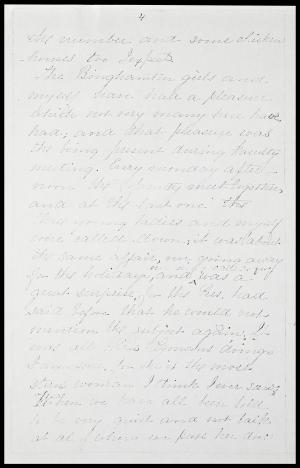 4
the number and some chicken
bones too I expect.
The Binghamton girls and
myself have had a pleasure
which not very many here have
had; and that pleasure was
the being present during faculty
meeting. Every monday after-
noon the faculty meet together,
and at the last one the
three young ladies and myself
were called down; it was about
the same affair, my going away
for the holidays, and was a
great surprise, for the Pres. had
said before that he would not
mention the subject again. It
was all Miss doings
I am sure, for she is the most
woman I think I ever saw.
When we have all been told
to be very quiet and not talk
at all when we pass her door